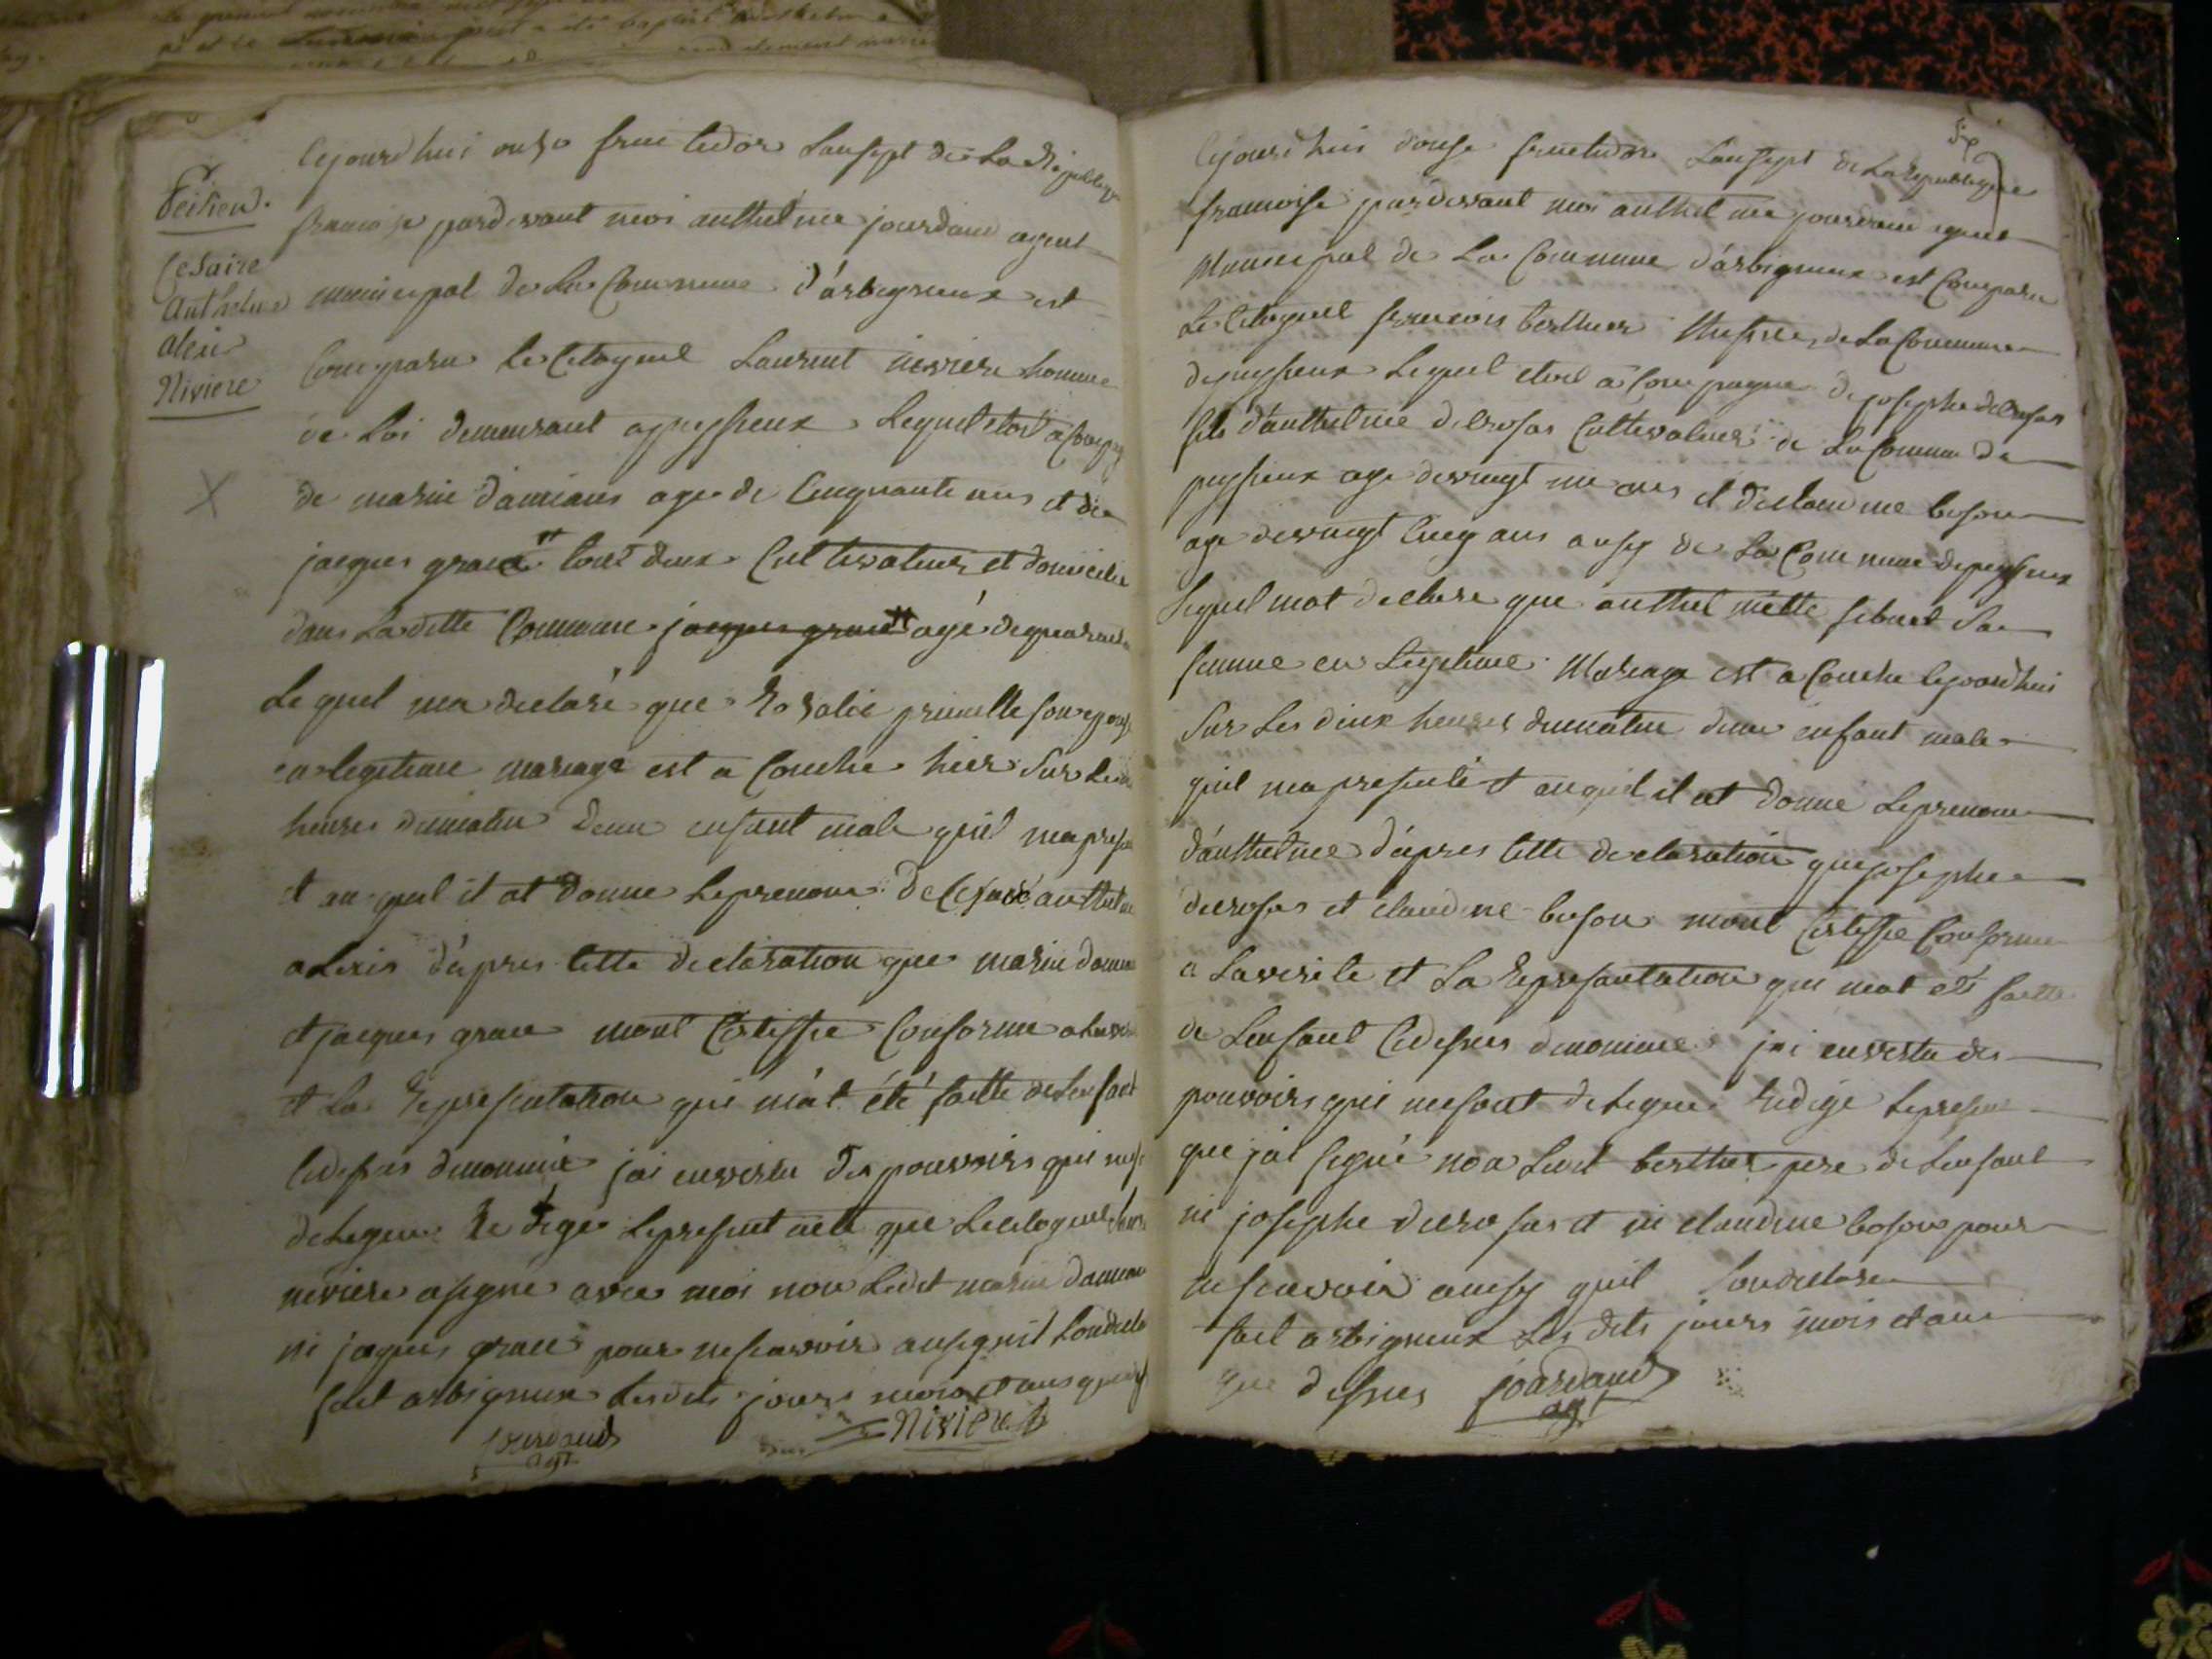 Peisieu.
Cesaire
Anthelme
alexis
Niviere
Cejourd'huis onze fructidor Lansept de La Republique
francoise pardevant moi anthelme jourdain agent
municipal de La Commune d'arbigneux est
Comparu Le Citoyent Laurent niviere homme
de Loi demeurant apeysieux Lequel etoit acompag
de marin damians age de Cinquante ans et de
jacques grace tout deux Cultivateurs et domicilie
dans Ladille Commune jacques grace agé dequarante
Lequel ma declaré que Rosalie prunelle son epouse
en legitime mariage est acouche hier sur Les
heures dumatin dun enfant male quil ma prese
et au quel il at donne Leprenom de Cesaire anthelme
alexis d'apres cette declaration que marin damian
et jacques grace mont Certiffie Conforme a Laver
et La Representation qui m'at été faitte de Lenfant
Cidesus denommé jai envertu des pouvoirs qui me
delegue Redigé Lepresent acte que Lecitoyent Laure
niviere asigné avec moi non Ledit marin damian
ni jacques grace pour nesavoir ausy quil Londecla
fait arbigneux Lesdits jours mois et ans que
jourdaind
agt
Niviere
Cejourd'huis douse fructidor Lansept de La Republique
francoise pardevant moi anthelme jourdain agent
Municipal de La Commune d'arbigneux est Comparu
Le Citoyent francois berthier de La Commune
depeysieux Lequel etoit acompagne de josephe decrosas
fils d'anthelme decrosas Cultivateur de La Commune de
peysieux age devingt un ans et de claudine beson
age devingt Cinq ans ausy de La Commune depeysieux
Lequel mat declare que anthelmette sibuet sa
femme en Legitime Mariage est acouche cejourdhui
sur Les deux heures dumatin dun enfant male
quil ma presenté et auquel il at donné Leprenom
d'anthelme d'apres cette declaration que josephe
decrosas et claudine beson mont Certiffie Conforme
a Laverite et La Representation qui mat eté faitte
de Lenfant Cidesus denommé jai envertu des
pouvoirs qui mesont delegue Redigé Lepresent
que jai signé non Ledit berthier pere de Lenfant
ni josephe decrosas et ni claudine beson pour
ne scavoir ausy quil Londeclare
fait arbigneux Les dits jours mois et an
que desus jourdaind
agt